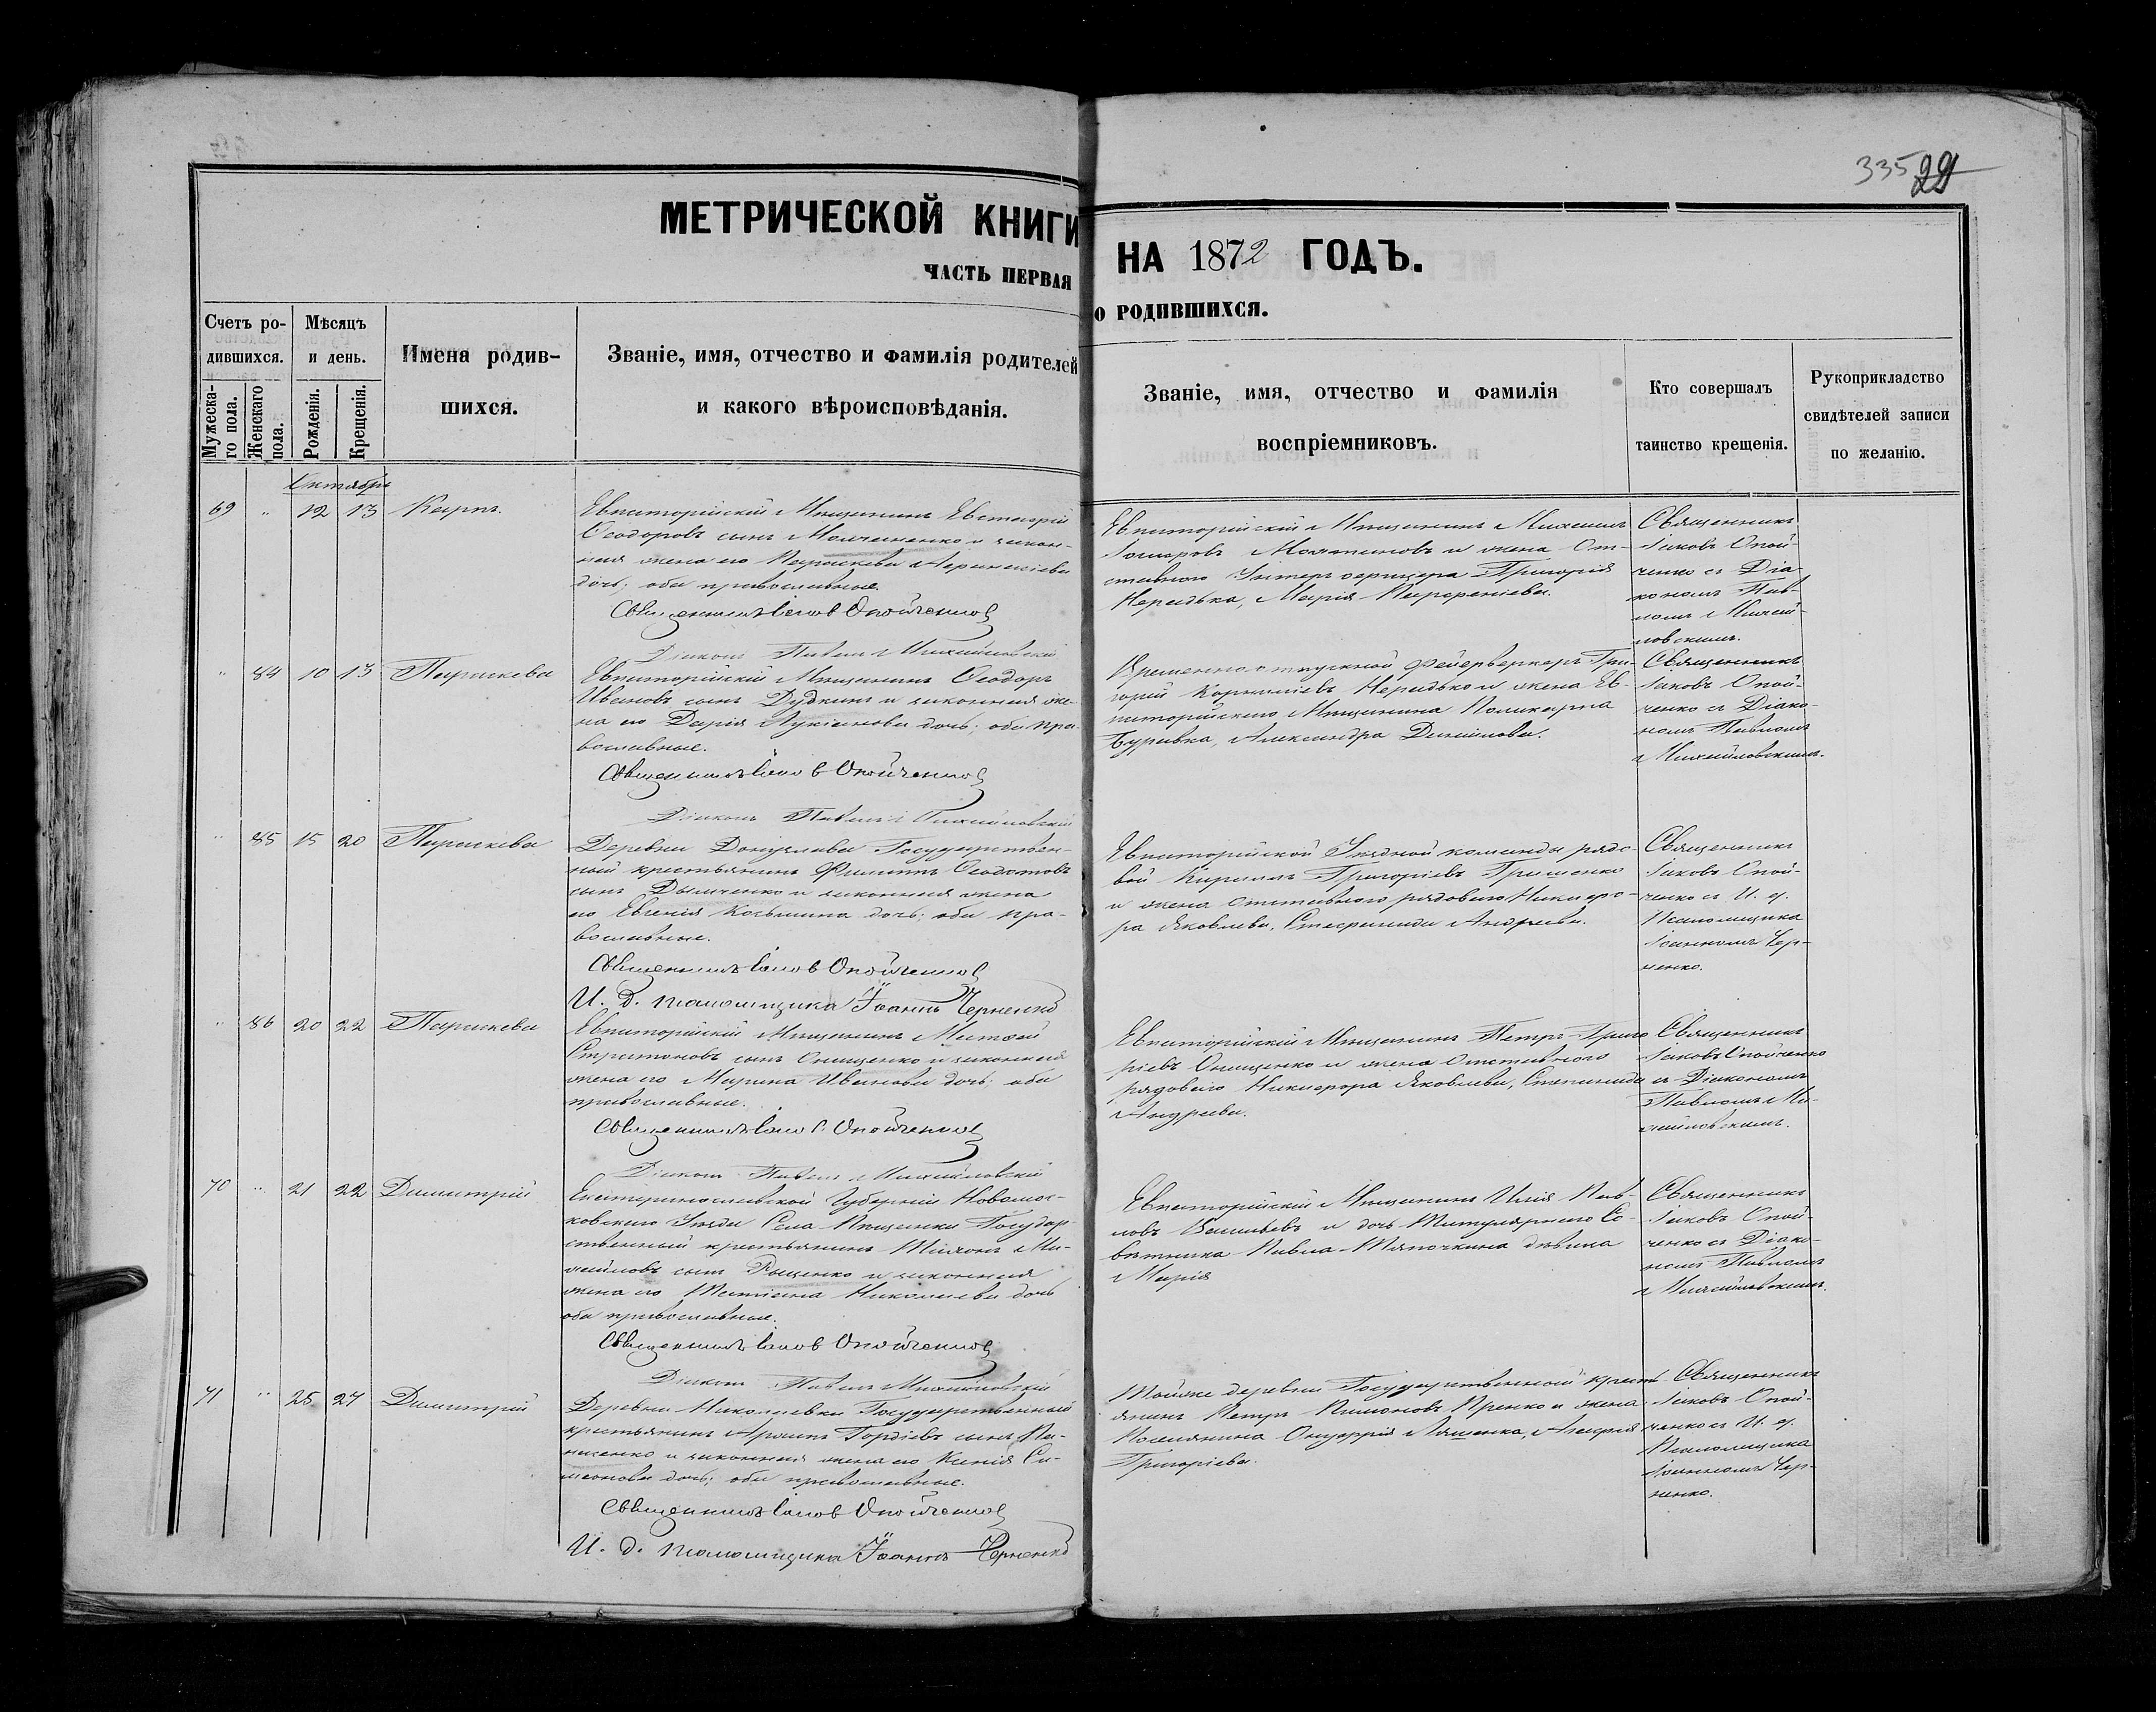 335 29
МЕТРИЧЕСКОЙ КНИГИ НА 1872 ГОДЪ.
ЧАСТЬ ПЕРВАЯ О РОДИВШИХСЯ.
Счетъ ро-
дившихся.
Мужеска-
го пола.
Женскаго
пола.
Мѣсяцъ
и день.
Рожденія.
Крещенія.
Имена родив-
шихся.
Званіе, имя, отчество и фамилія родителей
и какого вѣроисповѣданія.
Званіе, имя, отчество и фамилія
воспріемниковъ.
Кто совершалъ
таинство крещенія.
Рукоприкладство
свидѣтелей записи
по желанію.
Октябрь
69 " 12 13 Карпъ.
Евпаторійскій Мѣщанинъ Евстафій
Ѳеодоровъ сынъ Молчаненко и закон-
ная жена его Параскева
дочь; оба православные.
Священникъ Іаковъ Опойченко
Діаконъ Павелъ Михайловскій
Евпаторійскій Мѣщанинъ Михаилъ
и жена От-
ставного Унтеръ офицера Григорія
Нерадька, Марія Парфеніева.
Священникъ
Іаковъ Опой-
ченко съ Діа-
кономъ Пав-
ломъ Михай-
ловскимъ.
" 84 10 13 Параскева
Евпаторійскій Мѣщанинъ Ѳеодоръ
Ивановъ сынъ Дудкинъ и законная же-
на его Дарія Лукіанова дочь; оба пра-
вославные.
Священникъ Іаковъ Опойченко
Діаконъ Павелъ Михайловскій
Временно отпускной фейерверкеръ Гри-
горій Корниліевъ Нерадько и жена Ев-
паторійскаго Мѣщанина Поликарпа
Буравка, Александра Данилова.
Священникъ
Іаковъ Опой-
ченко съ Діако-
номъ Павломъ
Михайловскимъ.
" 85 15 20 Параскева
Деревни Донузлава Государствен-
ный крестьянинъ Филиппъ Ѳеодотовъ
сынъ Дымченко и законная жена
его Евгенія Косьмина дочь; оба пра-
вославные.
Священникъ Іаковъ Опойченко
И. д. псаломщика Іоаннъ Черненко
Евпаторійской Уѣздной команды рядо-
вой Кириллъ Григоріевъ Гришенко
и жена отставного рядового Никифо-
ра Яковлева, Степанида Андреева.
Священникъ
Іаковъ Опой-
ченко съ И. д.
Псаломщика
Іоанномъ Чер-
ненко.
" 86 20 22 Параскева
Евпаторійскій Мѣщанинъ Матѳей
Стратоновъ сынъ Онищенко и законная
жена его Марина Иванова дочь; оба
православные.
Священникъ Іаковъ Опойченко
Діаконъ Павелъ Михайловскій
Евпаторійскій Мѣщанинъ Петръ Григо-
ріевъ Онищенко и жена отставного
рядового Никифора Яковлева, Степанида
Андреева.
Священникъ
Іаковъ Опойченко
съ Діакономъ
Павломъ Ми-
хайловскимъ.
70 " 21 22 Димитрій
Екатеринославской Губерніи Новомос-
ковскаго Уѣзда Села Пещанки Государ-
ственный крестьянинъ Тихонъ Ми-
хайловъ сынъ и законная
жена его Татіана Николаева дочь
оба православные.
Священникъ Іаковъ Опойченко
Діаконъ Павелъ Михайловскій
Евпаторійскій Мѣщанинъ Илія Пав-
ловъ Васильевъ и дочь Титулярнаго Со-
вѣтника Павла Тяпочкина дѣвица
Марія
Священникъ
Іаковъ Опой-
ченко съ Діако-
номъ Павломъ
Михайловскимъ.
71 " 25 27 Димитрій
Деревни Николаевки Государственный
крестьянинъ Гордіевъ сынъ Па-
насенко и законная жена его Ксенія Си-
меонова дочь; оба православные.
Священникъ Іаковъ Опойченко
И. д. псаломщика Іоаннъ Черненко
Тойже деревни Государственный кресть-
янинъ Петръ и жена
Поселянина Онуфрія Ляшенка, Агафія
Григоріева.
Священникъ
Іаковъ Опой-
ченко съ И. д.
Псаломщика
Іоанномъ Чер-
ненко.